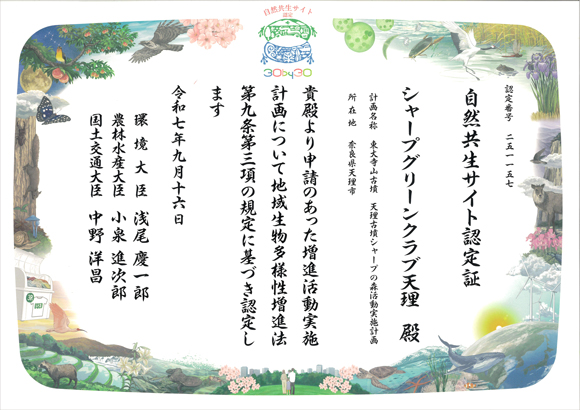 自然共生サイト
認定
30by30
認定番号 二五―一―一五七
自然共生サイト認定証
シャープグリーンクラブ天理 殿
計画名称 東大寺山古墳 天理古墳シャープの森活動実施計画
所在地 奈良県天理市
貴殿より申請のあった増進活動実施
計画について地域生物多様性増進法
第九条第三項の規定に基づき認定し
ます
令和七年九月十六日
環境大臣 浅尾 慶一郎
農林水産大臣 小泉 進次郎
国土交通大臣 中野 洋昌